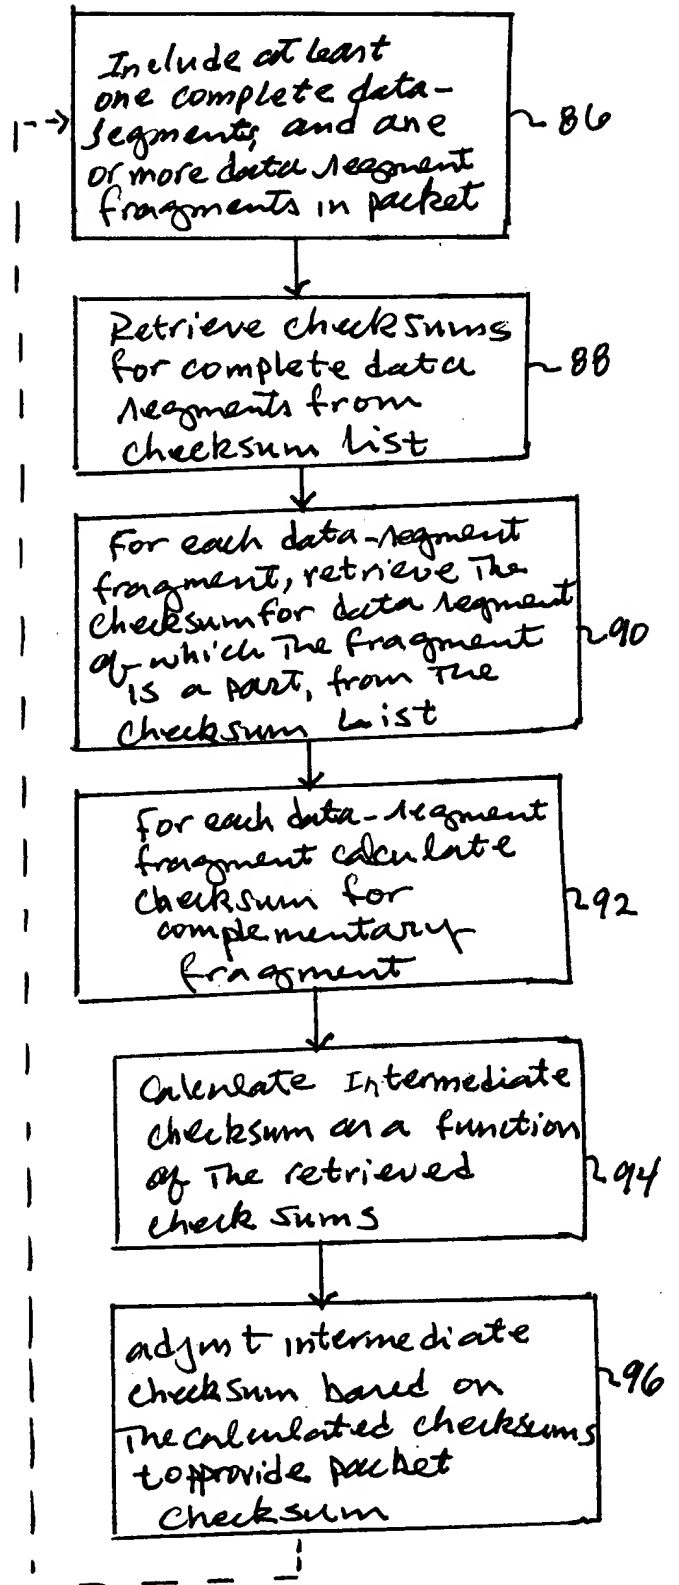 Include at least
one complete data-
segments, and one
or more data segment
fragments in packet
86
Retrieve checksums
for complete data
segments from
checksum list
88
For each data-segment
fragment, retrieve the
checksum for data segment
of which the fragment
is a part, from the
checksum list
90
For each data-segment
fragment calculate
checksum for
complementary
fragment
92
Calculate Intermediate
checksum as a function
of the retrieved
check sums
94
adjust intermediate
checksum based on
the calculated checksums
to pprovide packet
checksum
96